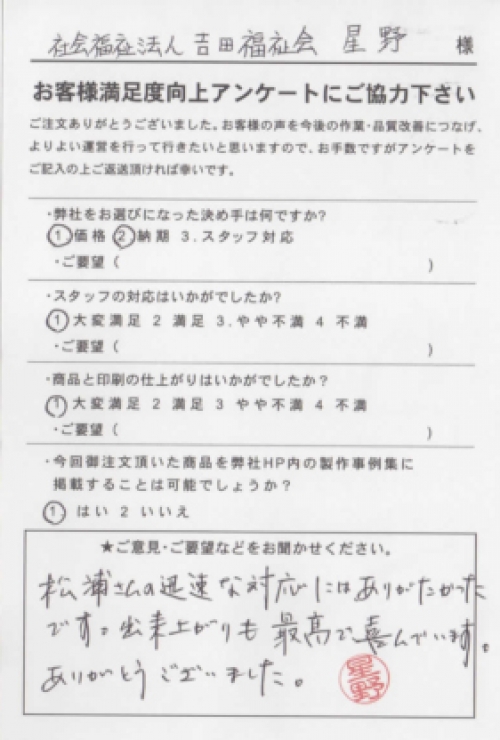 社会福祉法人 吉田福祉会 星野 様
お客様満足度向上アンケートにご協力下さい
ご注文ありがとうございました。お客様の声を今後の作業・品質改善につなげ、
よりよい運営を行って行きたいと思いますので、お手数ですがアンケートを
ご記入の上ご返送頂ければ幸いです。
・弊社をお選びになった決め手は何ですか?
1 価格 2 納期 3.スタッフ対応
・ご要望( )
・スタッフの対応はいかがでしたか?
1 大変満足 2 満足 3.やや不満 4 不満
・ご要望( )
・商品と印刷の仕上がりはいかがでしたか?
1 大変満足 2 満足 3 やや不満 4 不満
・ご要望( )
・今回御注文頂いた商品を弊社HP内の製作事例集に
掲載することは可能でしょうか?
1 はい 2 いいえ
★ご意見・ご要望などをお聞かせください。
松浦さんの迅速な対応にはありがたかった
です。出来上がりも最高で喜んでいます。
ありがとうございました。
星野